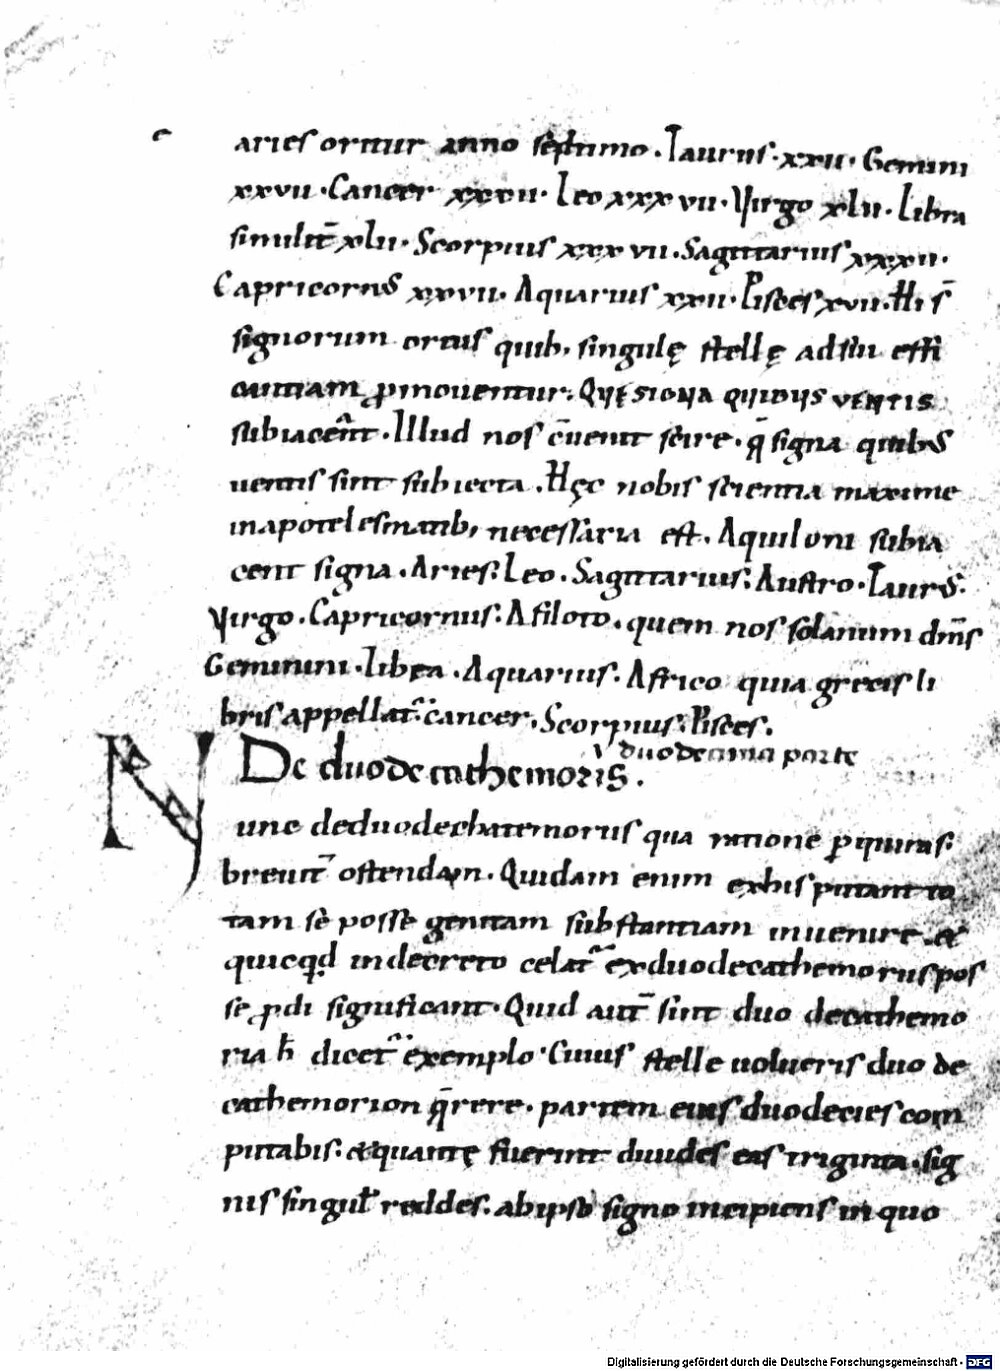 aries oritur anno septimo. Taurus. xxii. Gemini
xxvii. Cancer xxxii. Leo xxxvii. Virgo xlii. Libra
similit̄ xlii. Scorpius xxxvii. Sagittarius xxxii.
Capricorn' xxvii. Aquarius xxii. Pisces xvii. Hi s̄
signorum ortus quib; singulę stellę ad sui effi
catiam ꝓmoventur. QVĘ SIGNA QVIBVS VENTIS
subiacent. Illud nos c̄uenit scire. q̄ signa quibus
uentis sint subiecta. Hęc nobis scientia maxime
in apotelesmatib; necessaria est. Aquiloni subia
cent signa. Aries. Leo. Sagittarius. Austro. Taurus.
Virgo. Capricornus. Afilioto. quem nos solanum dim̄s
Gemini. libra. Aquarius. Africo quia grecis li
bris appellat̄. cancer. Scorpius. Pisces.
duodecima parte
De duodecathemoris.
Nunc de duodechatemoriis qua ratione ꝑquiras.
breuit̄ ostendam. Quidam enim ex his putant to
tam sè posse genituram substantiam inuenire. &
quicq̣d in decreto celat̄ ex duodecathemoriis pos
se ꝓdi significant. Quid aut̄ sint duodecathemo
ria h̄ dicet̄ exemplo. Cuius stelle uolueris duode
cathemorion q̄rere. partem eius duodecies com
putabis. & quantę fuerint diuides eas triginta. sig
nis singul̄ reddes. ab ipso signo incipiens in quo
Digitalisierung gefördert durch die Deutsche Forschungsgemeinschaft - DFG